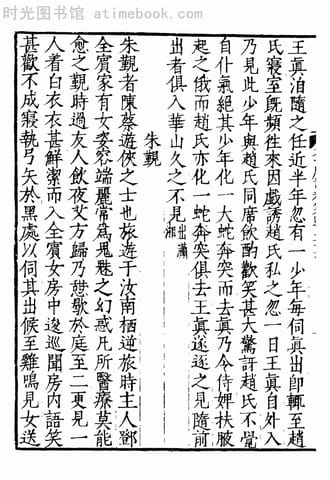 时光图书馆 atimebook.com
王真泊隨之任近半年忽有一少年每伺真出即輒至趙
氏寢室既頻往來因戲誘趙氏私之忽一日王真自外入
乃見此少年與趙氏同席飲酌歡笑甚大驚訝趙氏不覺
自仆氣絕其少年化一大蛇奔突而去真乃令侍婢扶腋
起之俄而趙氏亦化一蛇奔突俱去王真遂逐之見隨前
出者俱入華山久之不見出瀟湘
朱覲
朱覲者陳蔡遊俠之士也旅遊于汝南栖逆旅時主人鄧
全賓家有女姿容端麗常為鬼魅之幻惑凡所醫療莫能
愈之覲時過友人飲夜艾方歸乃憇歇於庭至二更見一
人着白衣衣甚鮮潔而入全賓女房中逡巡聞房內語笑
甚歡不成寢執弓矢於黑處以伺其出候至雞鳴見女送
时光图书馆 atimebook.com